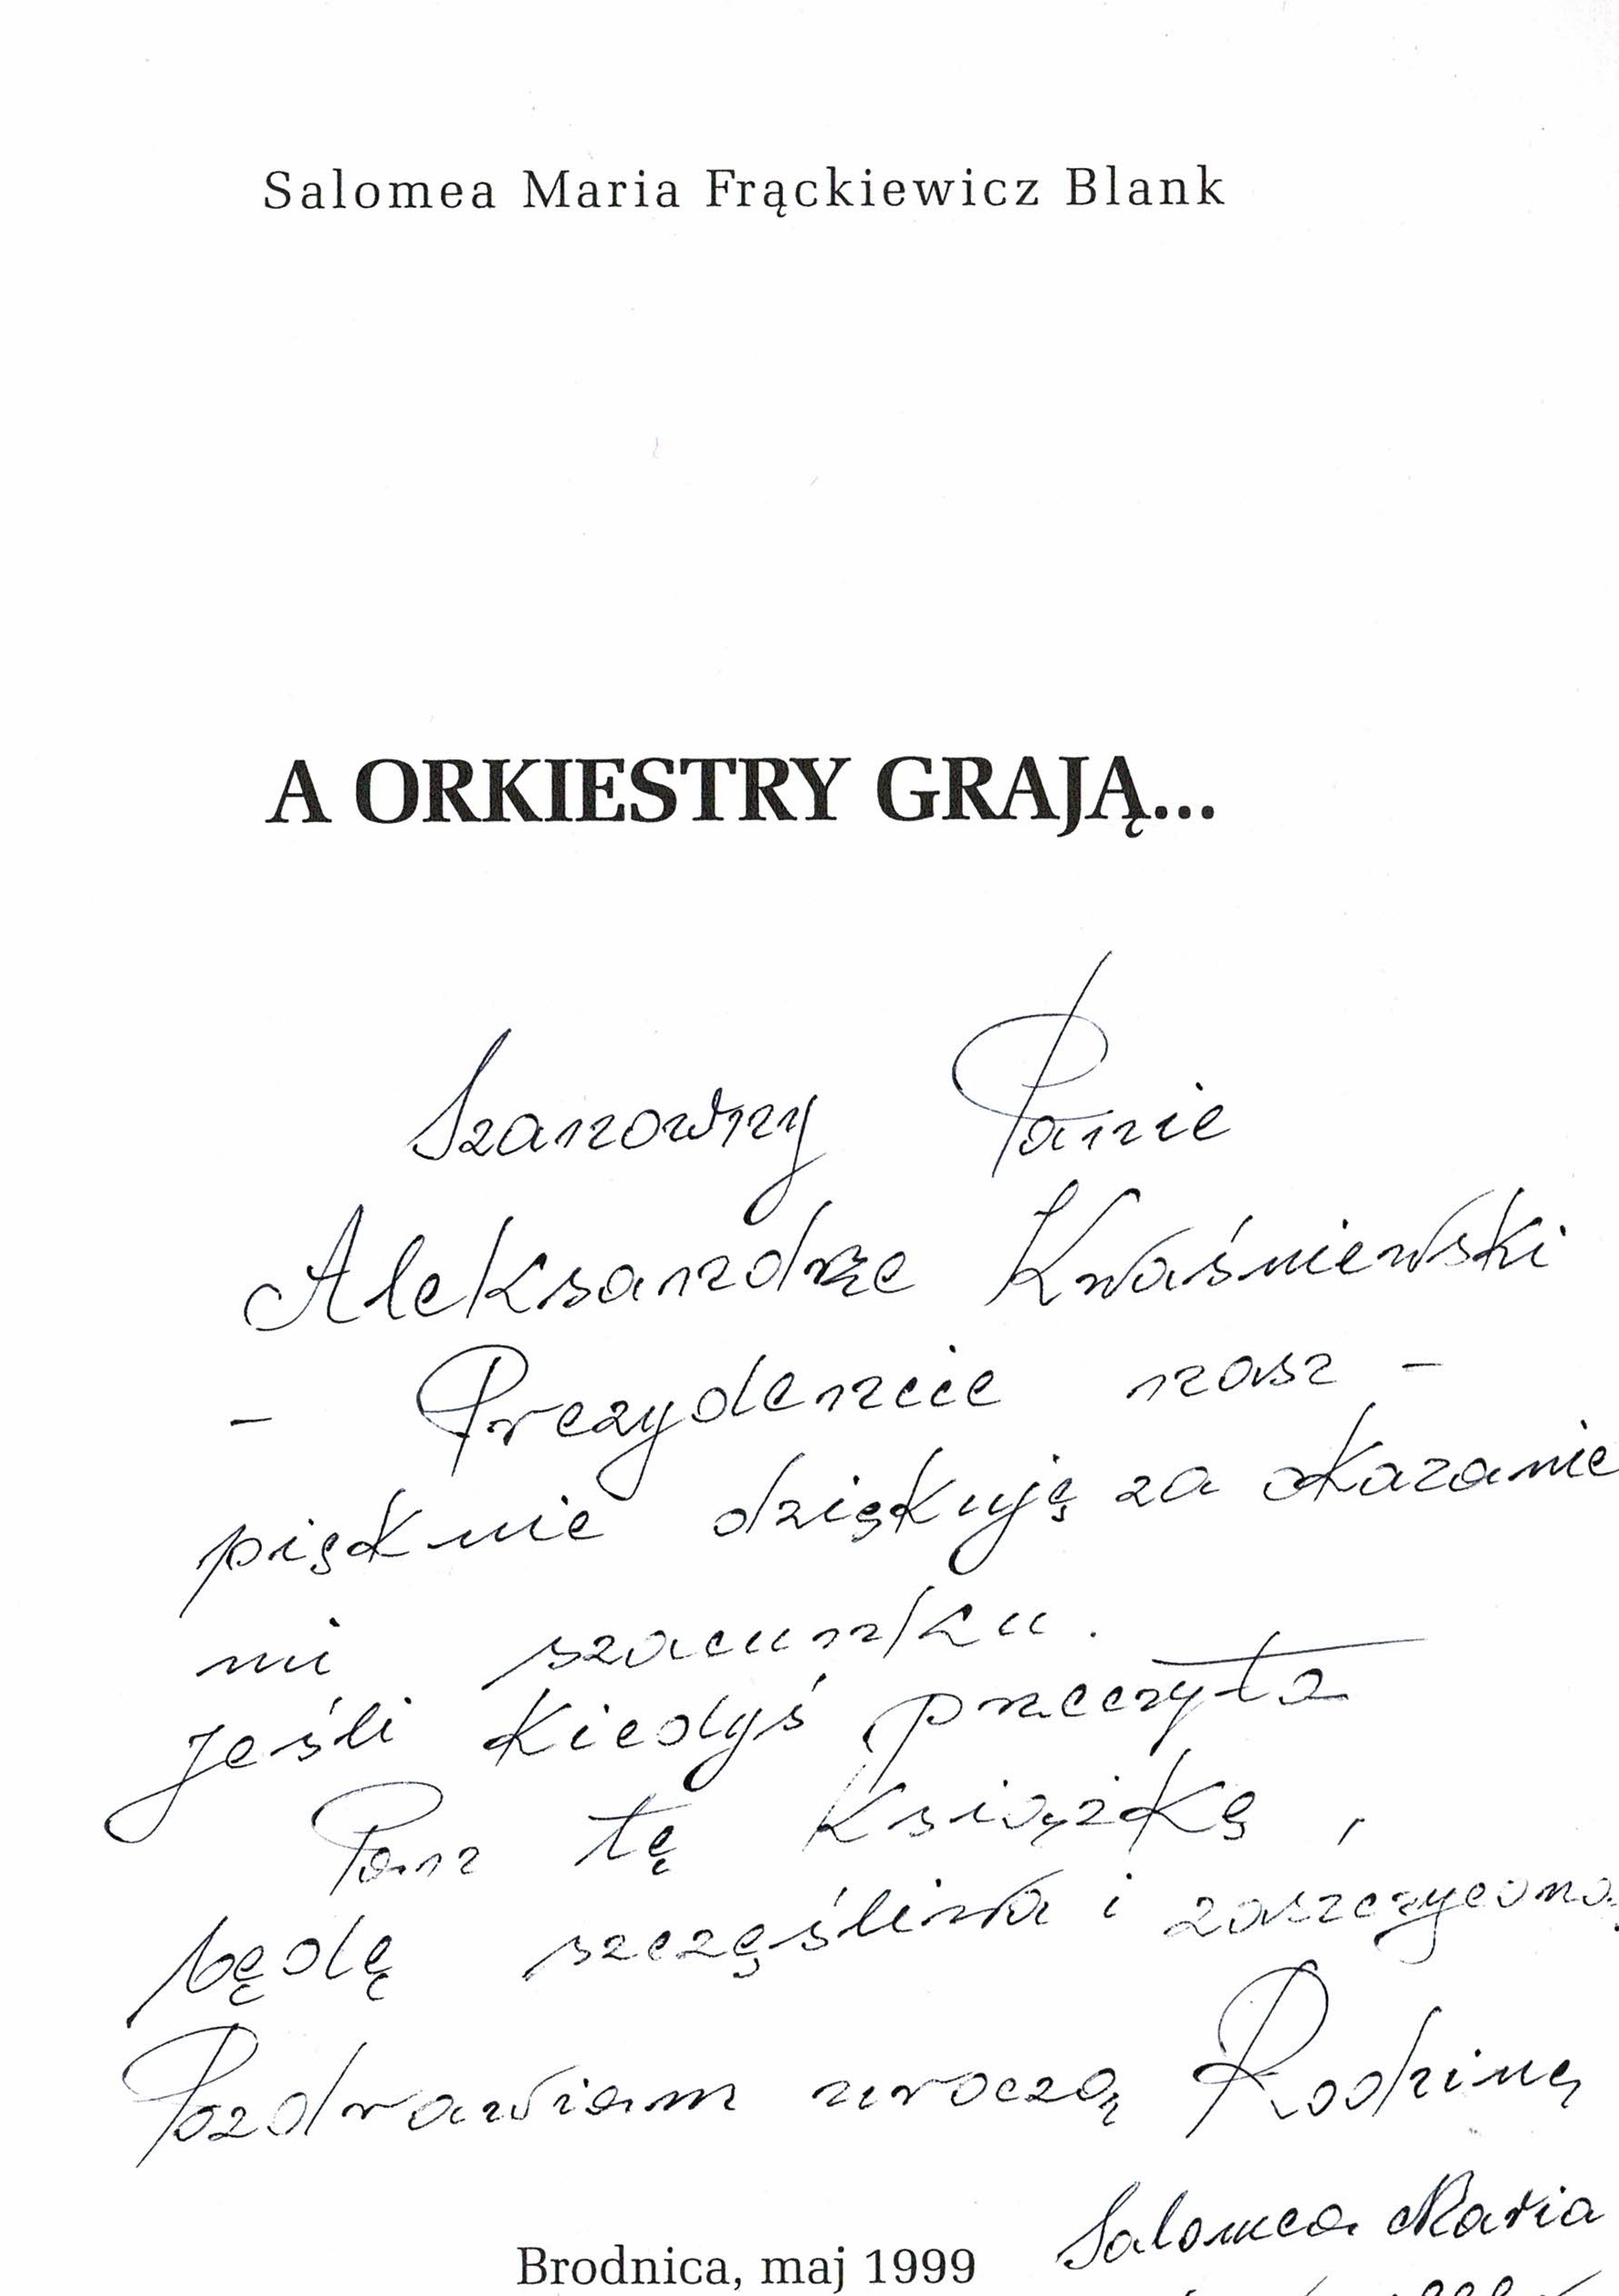 Salomea Maria Frąckiewicz Blank
A ORKIESTRY GRAJĄ...
Szanowny Panie
Aleksandrze Kwaśniewski
- Prezydencie nasz -
pięknie dziękuję za okazanie
mi szacunku.
Jeśli kiedyś przeczyta
Pan tę książkę,
będę szczęśliwa i zaszczycona
Pozdrawiam uroczą Rodzinę
Salomea Maria
Brodnica, maj 1999